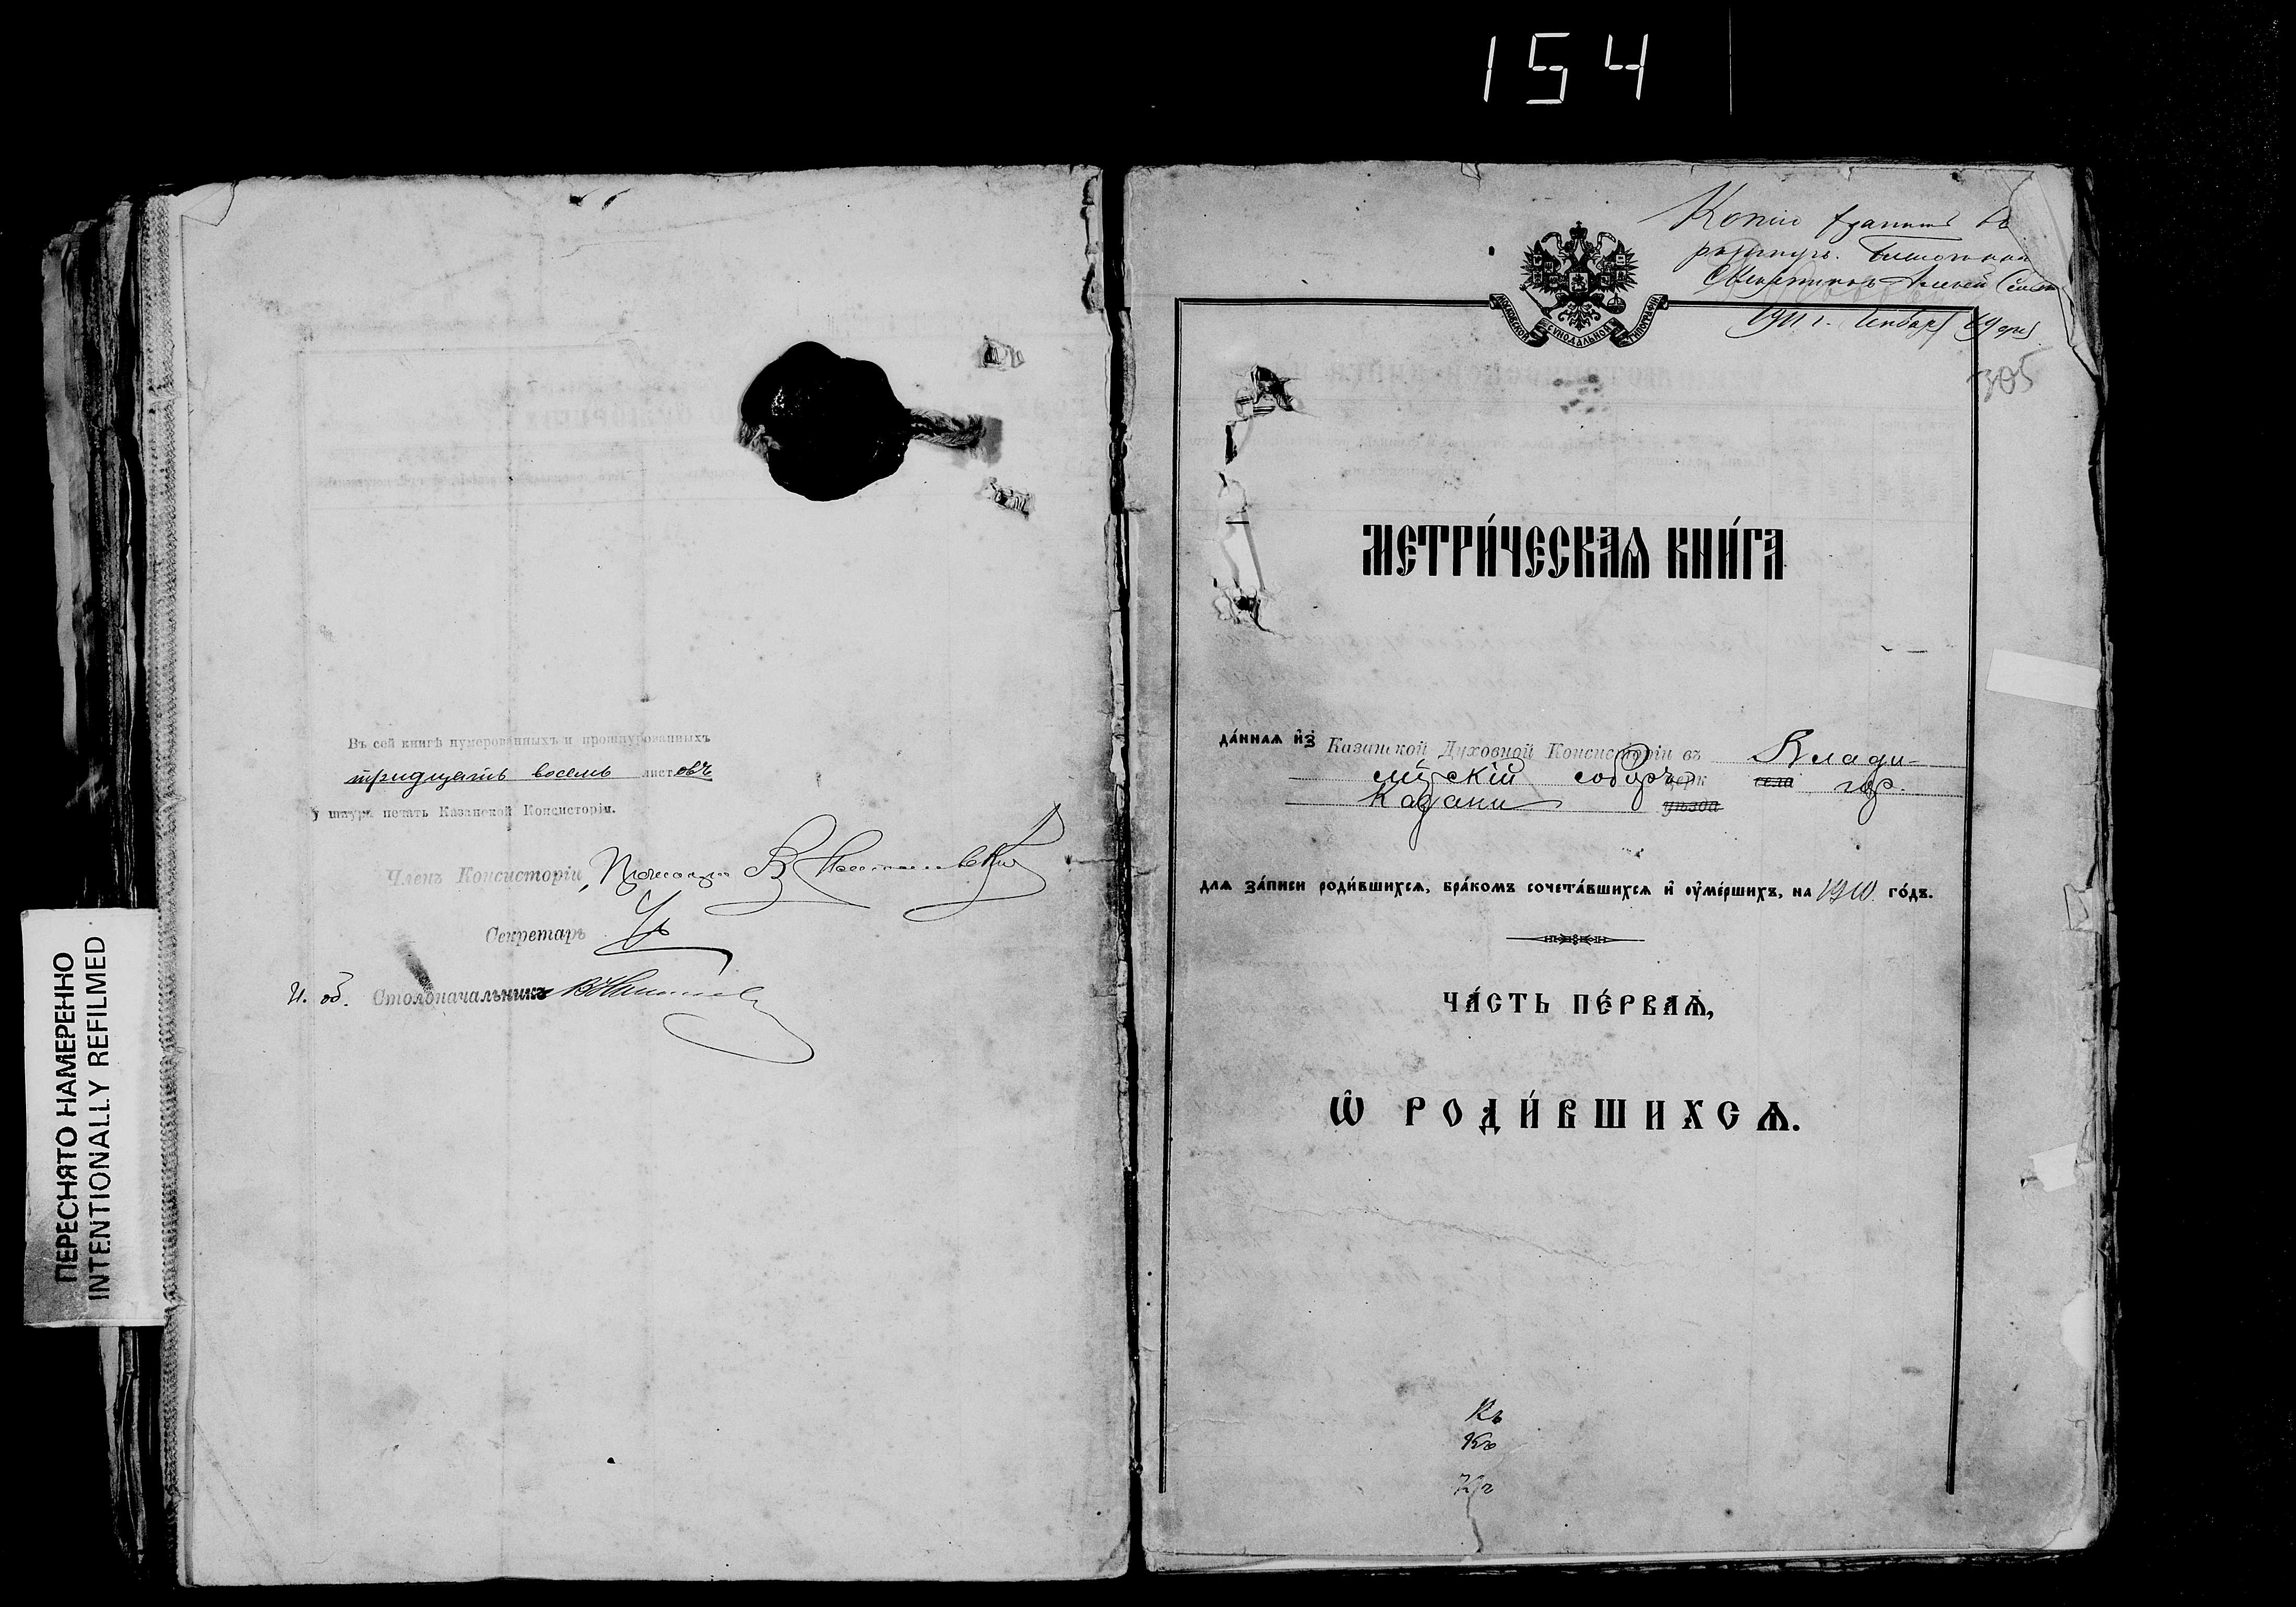 154
ПЕРЕСНЯТО НАМЕРЕННО
INTENTIONALLY REFILMED
Въ сей книгѣ нумерованныхъ и прошнурованныхъ
тридцать восемь листовъ
у шнура печать Казанской Консисторіи.
Членъ Консисторіи,
Секретарь
И. об. Столоначальникъ
Копію
1911 г. Января 19 дня
305
МОСКОВСКОЙ СѴНОДАЛЬНОЙ ТИПОГРАФІИ
МЕТРИ́ЧЕСКАѦ КНИ́ГА
да́ннаѧ и҆з̾ Казанской Духовной Консисторіи въ Влади-
мірскій соборъ церк села гор.
Казани уѣзда
длѧ за́писи роди́вшихсѧ, бра́комъ сочета́вшихсѧ и҆ ᲂу҆ме́ршихъ, на 1910 го́дъ.
ЧА́СТЬ ПЕ́РВАѦ,
Ѽ РОДИ́ВШИХСѦ.
Къ
Къ